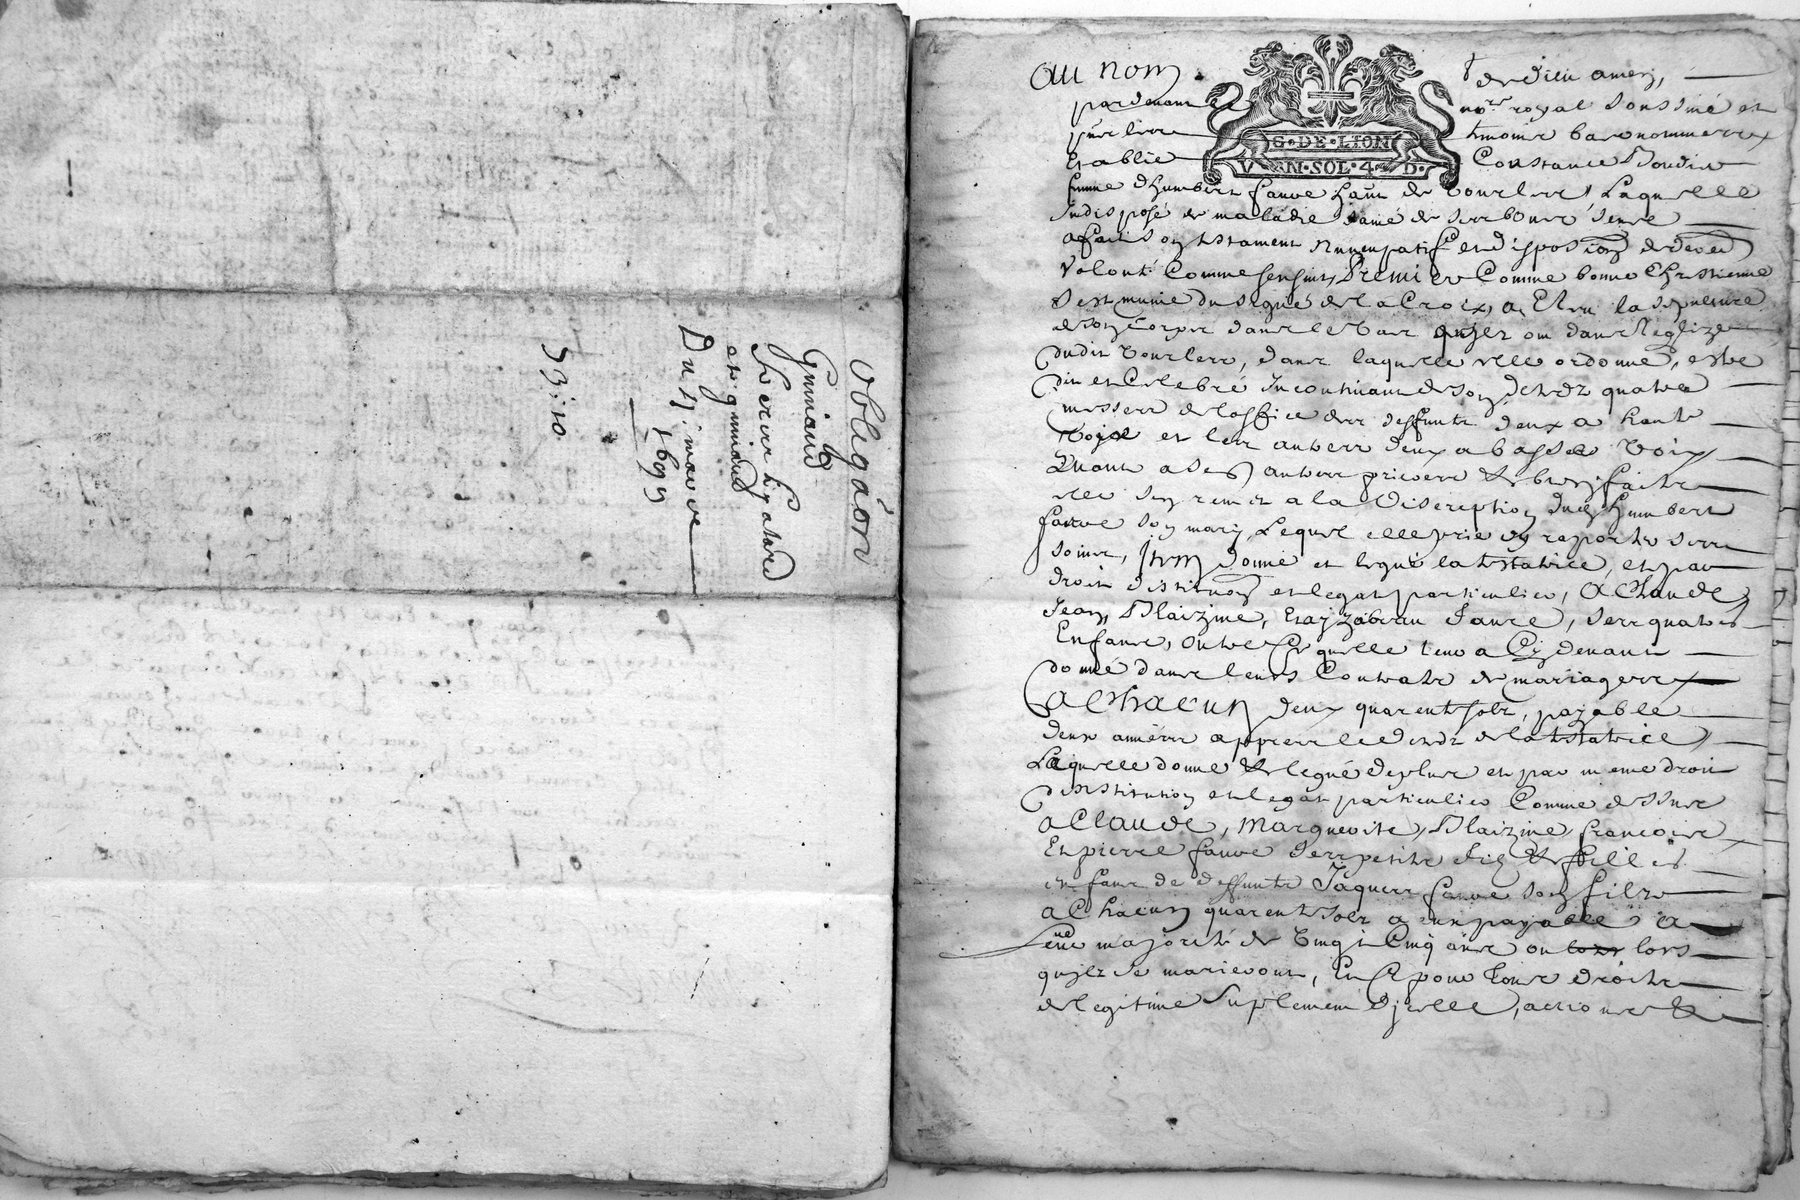 obligãon
Guiniaud
a
Du 4. mars
1695
53:10
au nom de dieu amen,
pardevant le no.re royal soussiné et
présents les temoins bas nommerez
Establie Constance Boudin
femme d'humbert fauve hau de Bourlere, Laquelle
Indisposé de maladie saine de ses bonner sence
a fait son testament Nuncupatif et disposion de ded
Volonté Comme sensuit, Premier Comme bonne Chrestienne
S'est munie du signe de la Croix, a Eleu la sepulture
de son Corps dans le Vas ou dans l'eglize
dudit Bourlere, dans laquelle elle ordonne, estre
dit et Celebré Incontinant de son decedz quatre
messes de loffice des deffunts deux a haute
Voix et les autres deux a basse Voix
Quant a ses autres prieres et bienfaits
elle s'en remet a la Discreption dud Humbert
fauve son mary, Lequel elle prie en raporter
soins, Item donne et legue la testatrice, et par
droit d'istituon et legat particulier, a Claude
Jean, Blaizine, Et yzabeau faure, ses quatres
Enfans, outre Ce quelle leur a Cy devant
donné dans leurs Contrats de mariagere
a Chacun deux quarent solz, payable
deux années appres le decedz de la testatrice
Laquelle donne et legue de plus et par meme droit
d'istitution et legat particulier Comme dessus
a Claude, Marguerite, Blaizine, francoise
Et pierre fauve ses petits filz et filles
enfans de deffunts Jaques fauve son filz
a Chacun quarent solz a eux payable a
Leur majorité de Vingt Cinq ans ou lors
quilz se marieront, Et Ce pour tous droits
de legitime suplement d'jcelle, actions &
G·DE·LION
V EN·SOL·4 D·